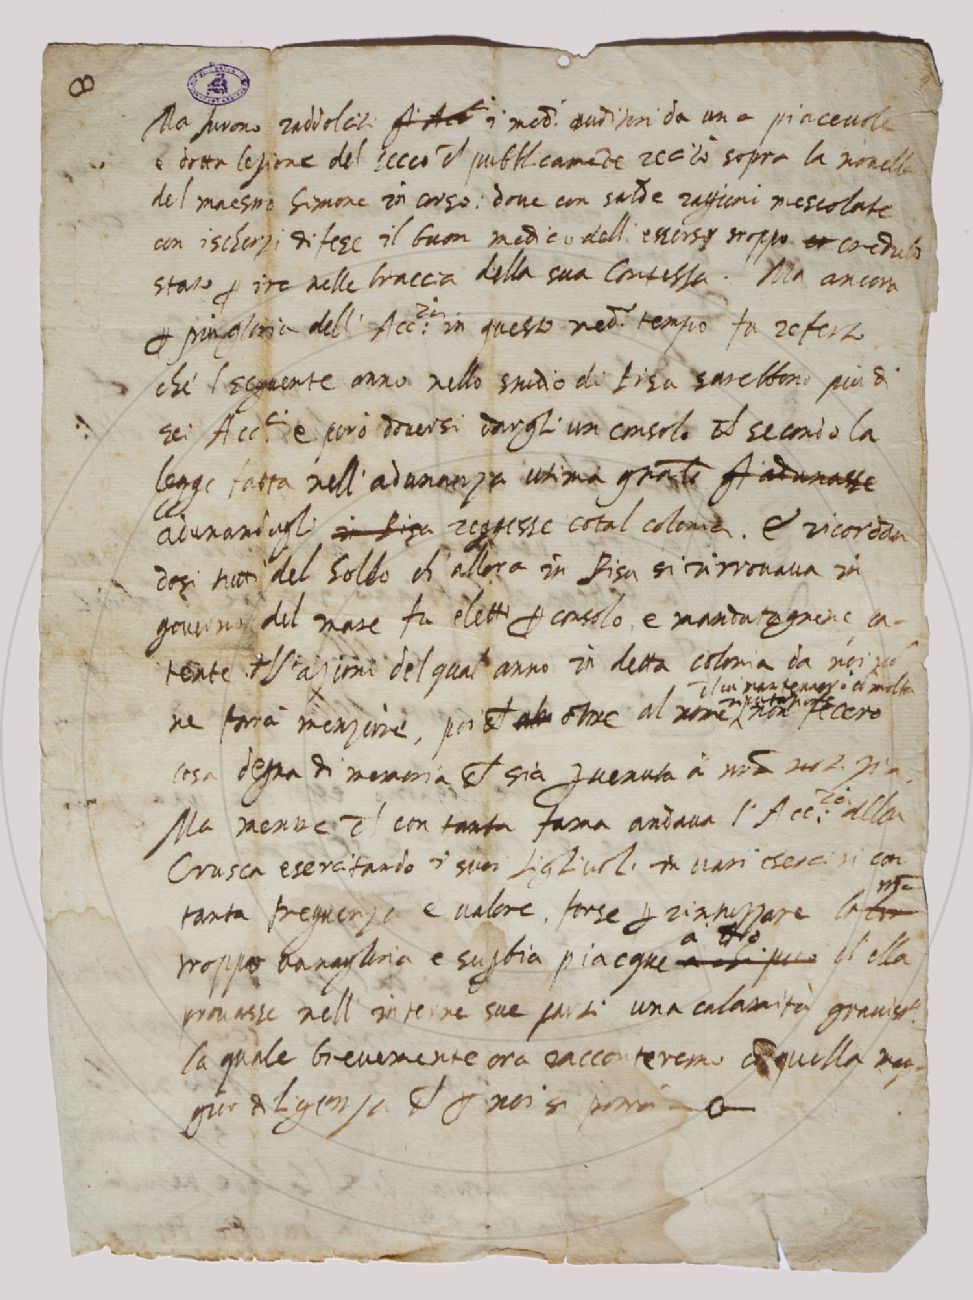 8
Ma furono raddolciti i med.i auditori da una piacevole
e dotta lezione del Secco ch' pubblicamente recitò sopra la novella
del maestro Simone in corso: dove con salde ragioni mescolate
con ischerzi difese il buon medico dell' essersi troppo credulo
stato p ire nelle braccia della sua Contessa. Ma ancora
p più gloria dell' Acc.ia in questo med.o tempo fu referto
che 'l seguente anno nello studio di Pisa sarebbono più di
sei Acc.i e però doversi dargli un consolo ch' secondo la
legge fatta nell' adunanza ultima
adunandogli reggesse cotal colonia. E ricordan
dosi tutti del Sollo ch' allora in Pisa si ritrovava in
governo del mare fu eletto p consolo, e mandatogliene pa-
tente. Le azioni del qual anno in detta colonia da noi non
ne farrà menzione, poi ch' oltre al nome non fecero
cosa degna di memoria ch' sia pvenuta à nra notizia.
Ma mentre ch' con tanta fama andava l' Acc.ia della
Crusca esercitando i suoi figliuoli in vari esercizi con
tanta frequenza e valore, forse p rintuzzare la nra
troppo vanagloria e supbia piacque a Dio ch' ella
provasse nell' interne sue parti una calamità graviss.a
la quale brevemente ora racconteremo con quella mag-
gior diligenza ch' p noi si potrà